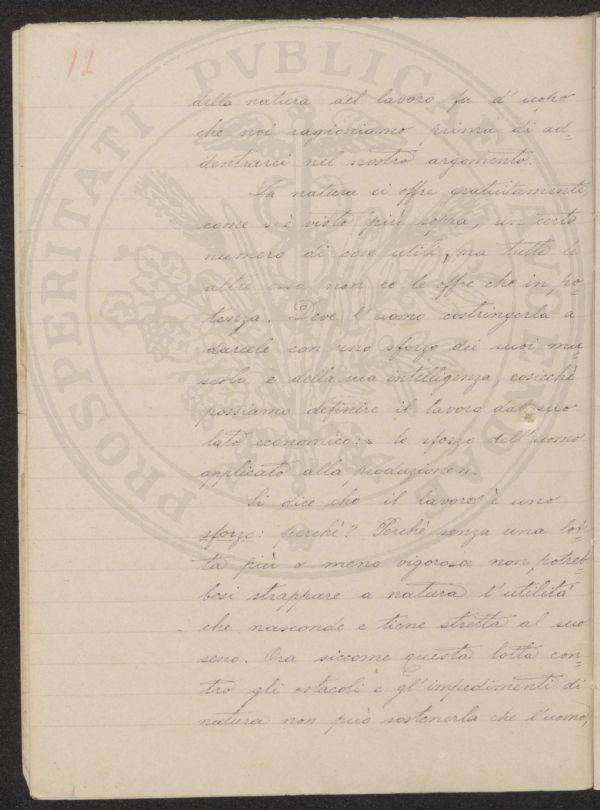 12
della natura del lavoro fa d'uopo
che noi ragioniamo, prima di ad-
dentrarci nel nostro argomento.
La natura ci offre gratuitamente
come s'è visto più sopra, un certo
numero di cose utili, ma tutte le
altre essa non ce le offre che in po-
tenza. Deve l'uomo costringerla a
darcele con uno sforzo dei suoi mu-
scoli e della sua intelligenza, cosicchè
possiamo definire il lavoro dal suo
lato economico: « lo sforzo dell'uomo
applicato alla produzione ».
Si dice che il lavoro è uno
sforzo: perchè? Perchè senza una lot-
ta più o meno vigorosa non potreb-
besi strappare a natura l'utilità
che nasconde e tiene stretta al suo
seno. Ora siccome questa lotta con-
tro gli ostacoli e gl'impedimenti di
natura non può sostenerla che l'uomo,
PROSPERITATI PVBLICAE